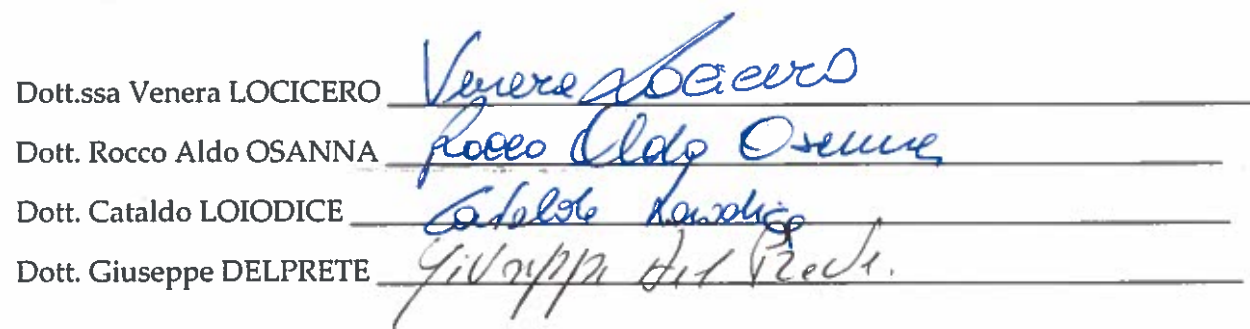 Dott.ssa Venera LOCICERO Venera Locicero
Dott. Rocco Aldo OSANNA Rocco Aldo Osanna
Dott. Cataldo LOIODICE Cataldo Loiodice
Dott. Giuseppe DELPRETE Giuseppe Del Prete.